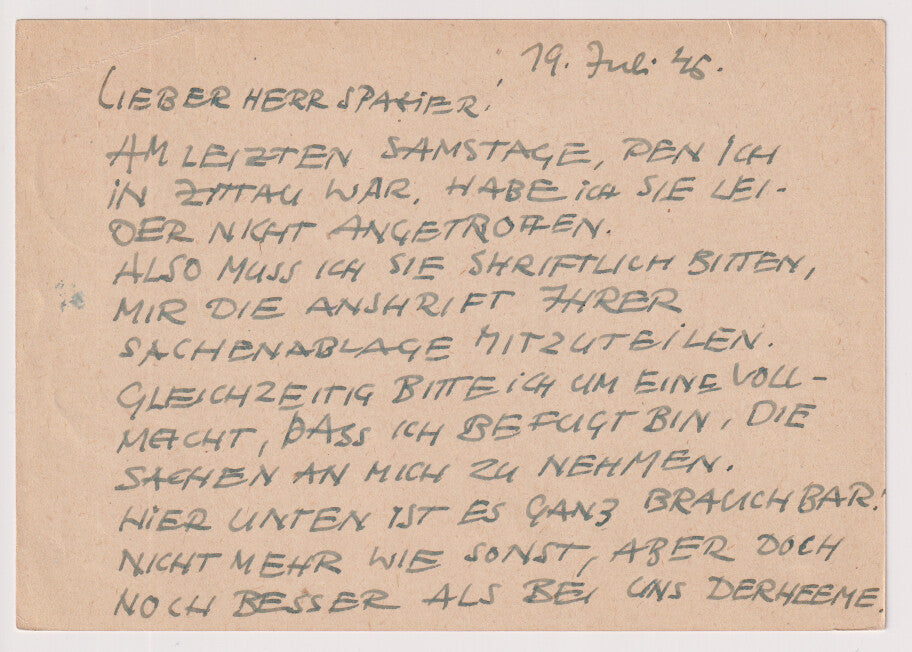 19. Juli 46.
LIEBER HERR SPAZIER!
AM LETZTEN SAMSTAGE, DEN ICH
IN ZITTAU WAR, HABE ICH SIE LEI-
DER NICHT ANGETROFFEN.
ALSO MUSS ICH SIE SHRIFTLICH BITTEN,
MIR DIE ANSHRIFT IHRER
SACHENABLAGE MITZUTEILEN.
GLEICHZEITIG BITTE ICH UM EINE VOLL-
MACHT, DASS ICH BEFUGT BIN, DIE
SACHEN AN MICH ZU NEHMEN.
HIER UNTEN IST ES GANZ BRAUCHBAR!
NICHT MEHR WIE SONST, ABER DOCH
NOCH BESSER ALS BEI UNS DERHEEME.